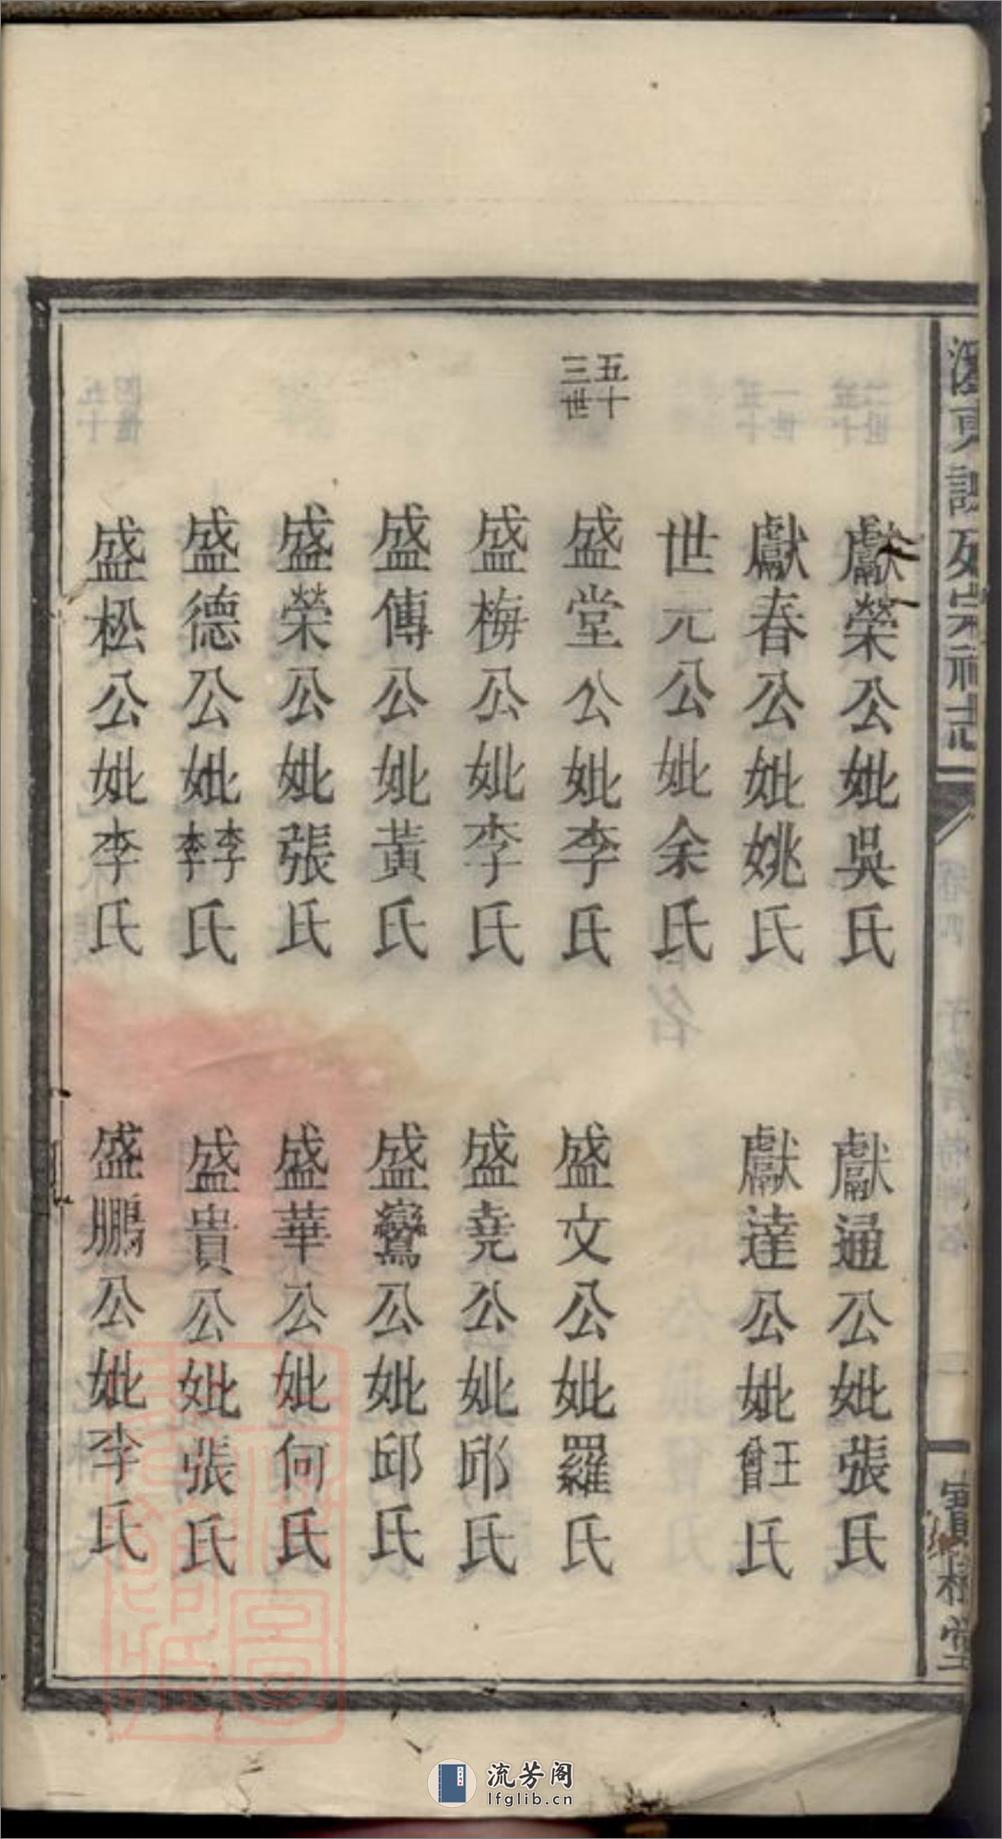 獻榮公妣吳氏
獻通公妣張氏
獻春公妣姚氏
獻達公妣王曾氏
世元公妣余氏
五十三世
盛堂公妣李氏
盛文公妣羅氏
盛梅公妣李氏
盛堯公妣邱氏
盛傳公妣黃氏
盛鸞公妣邱氏
盛榮公妣張氏
盛華公妣何氏
盛德公妣李李氏
盛貴公妣張氏
盛松公妣李氏
盛鵬公妣李氏
流芳阁
lfglib.cn